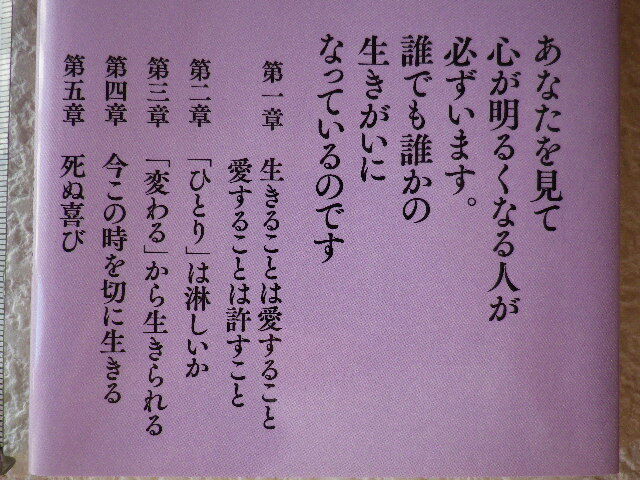 あなたを見て
心が明るくなる人が
必ずいます。
誰でも誰かの
生きがいに
なっているのです
第一章 生きることは愛すること
愛することは許すこと
第二章 「ひとり」は淋しいか
第三章 「変わる」から生きられる
第四章 今この時を切に生きる
第五章 死ぬ喜び